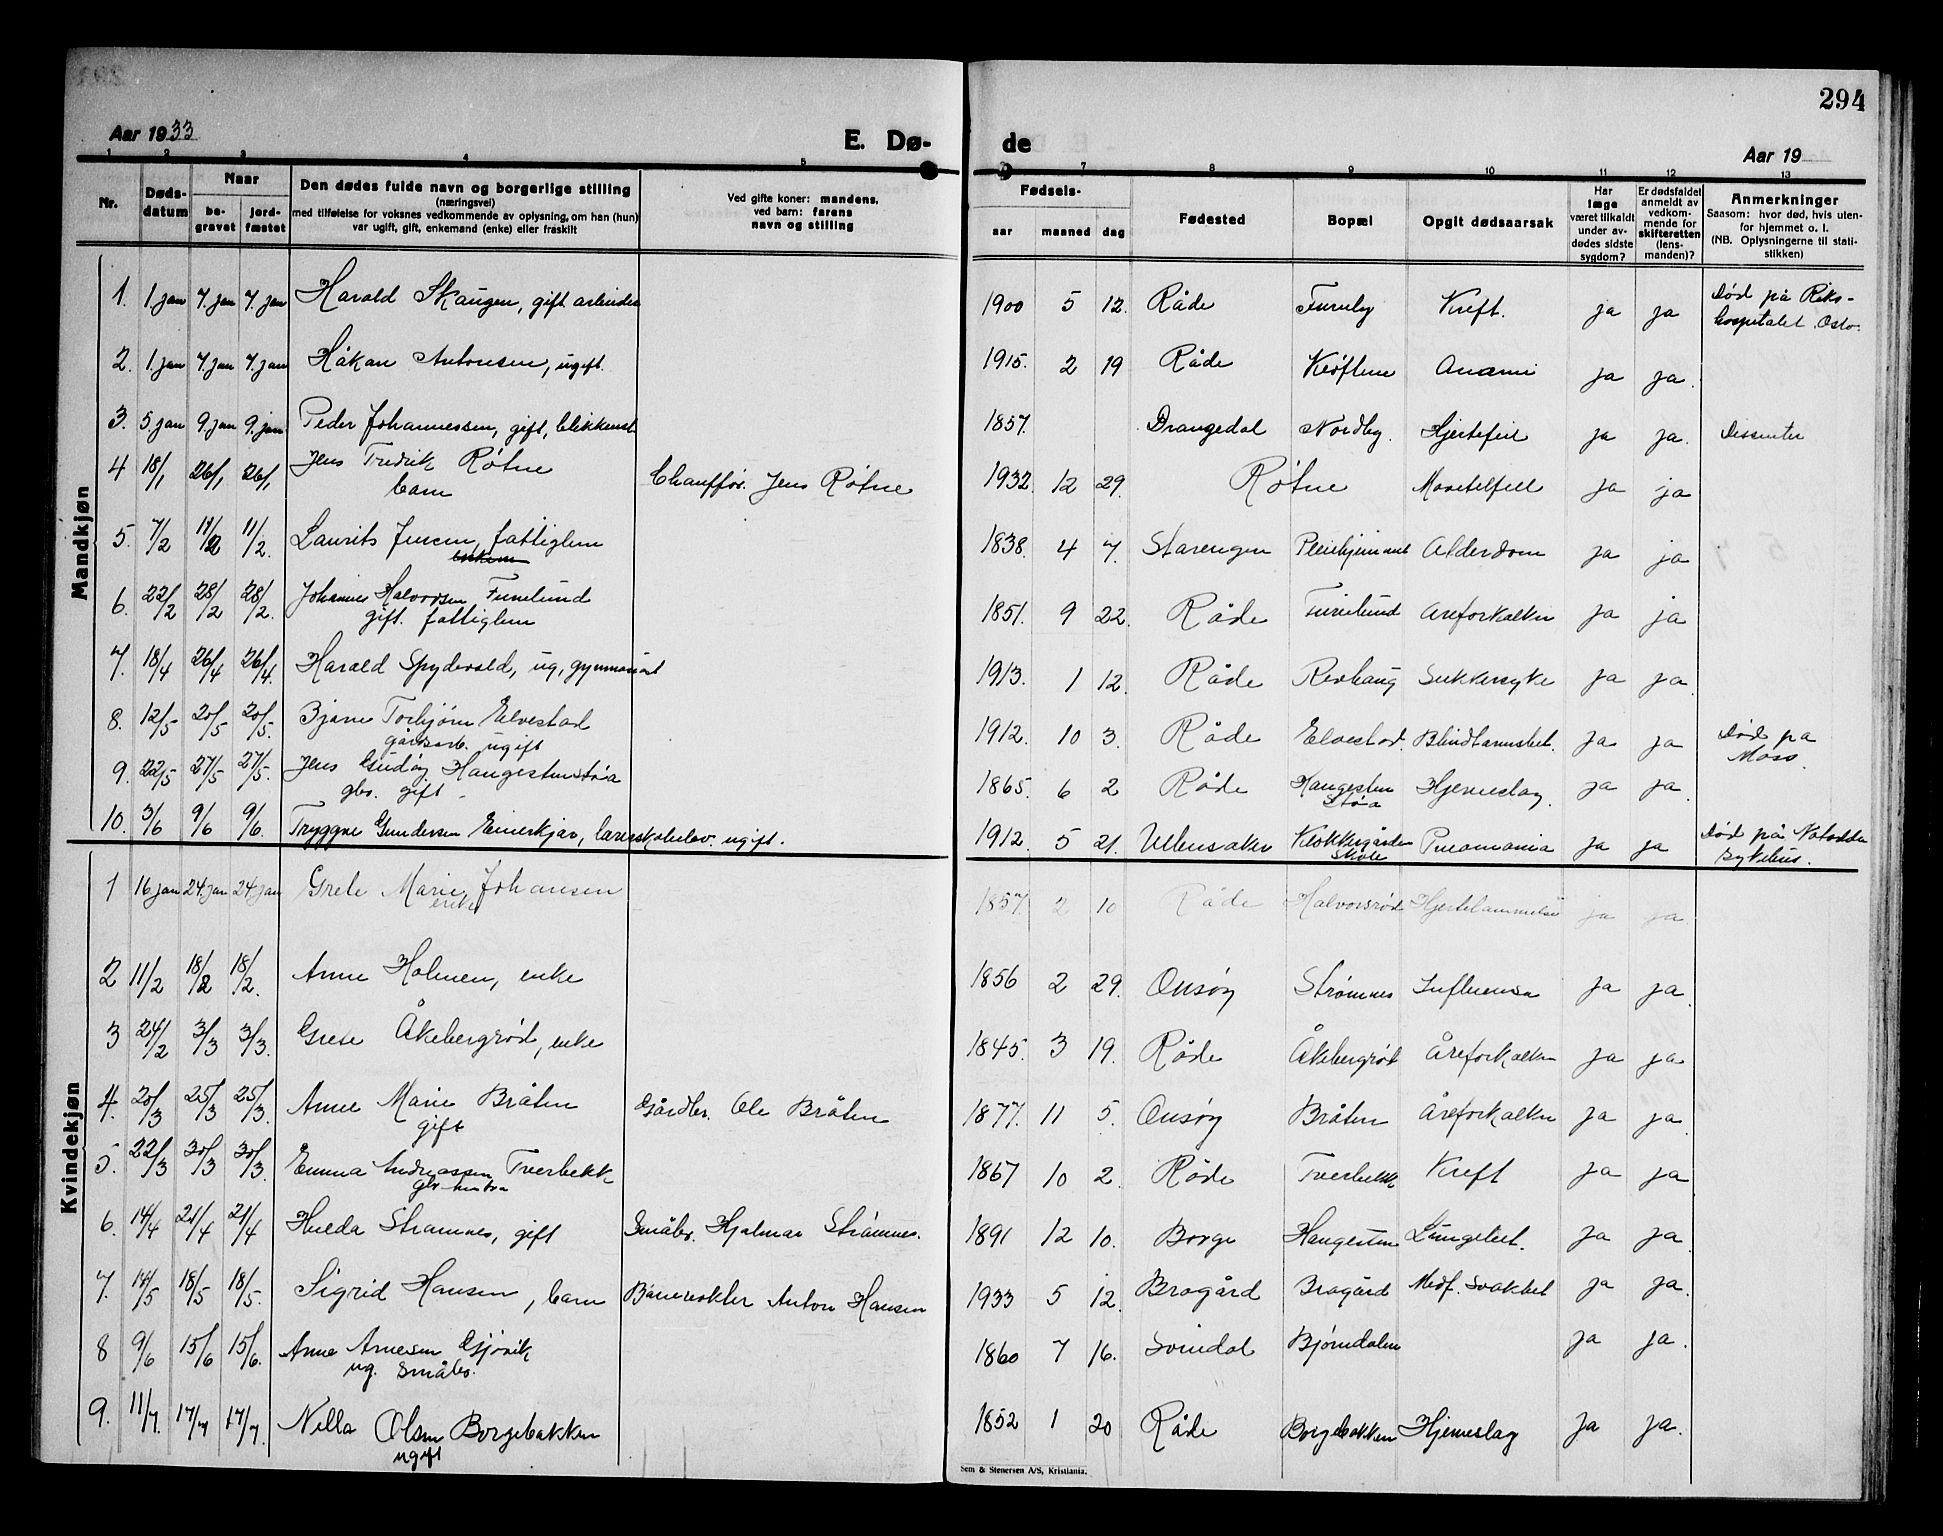 294
Aar 1933
E. Dø-
de
Aar 19
1 2 3 4 5 7 8 9 10 11 12 13
Nr.
Døds-
datum
Naar
be-
gravet
jord-
fæstet
Den dødes fulde navn og borgerlige stilling
(næringsvei)
med tilføielse for voksnes vedkommende av oplysning, om han (hun)
var ugift, gift, enkemand (enke) eller fraskilt
Ved gifte koner: mandens,
ved barn: farens
navn og stilling
Fødsels-
aar maaned dag
Fødested
Bopæl
Opgit dødsaarsak
Har
læge
været tilkaldt
under av-
dødes sidste
sygdom?
Er dødsfaldet
anmeldt av
vedkom-
mende for
skifteretten
(lens-
manden)?
Anmerkninger
Saasom: hvor død, hvis uten-
for hjemmet o. l.
(NB. Oplysningerne til stati-
stikken)
Mandkjøn
1. 1. jan 7. jan 7. jan Harald Skaugen, gift. arbeider 1900 5 12. Råde Furuly Kreft. ja ja Død på Riks-
hospitalet. Oslo.
2. 1. jan 7. jan 7. jan Håkan Antonsen, ugift. 1915. 2 19 Råde Kløftene Anæmi ja ja.
3. 5. jan 9. jan 9. jan Peder Johannessen, gift, blikkensl 1857. Drangedal Nordby. Hjertefeil ja ja. Dissenter
4 18/1 26/1 26/1 Jens Fredrik Røtne
barn Chauffør. Jens Røtne 1932. 12 29. Røtne ja ja
5. 7/2 11/2 11/2. Laurits Jensen, fattiglem
1838. 4 7. Starengen Pleiehjemmet Alderdom ja ja
6. 22/2 28/2 28/2. Johannes Halvorsen Furulund
gift. fattiglem 1851. 9 22. Råde Furulund Åreforkalkn ja ja
7. 18/4 26/4 26/4. Harald Spydevold, ug, gymnasiast 1913. 1 12. Råde Revhaug Sukkersyke ja ja.
8. 12/5 20/5 20/5. Bjarne Torbjørn Elvestad
gårdsarb. ugift 1912. 10 3. Råde Elvestad. Blindtarmsbet. ja ja Død på
Moss.
9. 22/5 27/5 27/5. Jens Gudøy Haugestenstøa
gbr. gift 1865. 6 2 Råde Haugesten
Støa Hjerneslag. ja ja
10. 3/6 9/6 9/6. Tryggve Gundersen Einerkjær, lærerskoleelev. ugift. 1912. 5 21. Ullensaker Klokkergården
Skole Pneomonia ja ja Død på Notodden
Sykehus.
Kvindekjøn
1 16 jan 24. jan 24. jan Grete Marie Johansen
enke 1857. 2 10 Råde Halvorsrød Hjertelammelse ja ja
2 11/2 18/2 18/2. Anne Holmen, enke 1856 2 29. Onsøy Strømnes Influensa ja ja.
3 24/2 3/3 3/3. Grete Åkebergrød, enke 1845. 3 19. Råde Åkebergrød Åreforkalkn ja ja
4. 20/3 25/3 25/3. Anne Marie Bråten
gift Gårdbr. Ole Bråten 1877. 11 5. Onsøy Bråten Åreforkalkn ja ja.
5. 22/3 30/3 30/3. Emma Andreassen Tverbekk
gbr-hustru 1867 10 2. Råde Tverbekk Kreft ja ja
6. 14/4 21/4 21/4 Hulda Strømnes, gift Småbr. Hjalmar Strømnes. 1891 12 10. Borge Haugesten Lungebet. ja ja.
7. 14/5 18/5 18/5. Sigrid Hansen, barn Banevokter Anton Hansen 1933 5 12. Brogård Brogård Medf. svakhet ja ja.
8 9/6 15/6 15/6. Anne Arnesen Gjøvik
ug. småbr. 1860 7 16. Svindal Bjørndalen ja ja.
9. 11/7. 17/7 17/7. Nilla Olsen Borgebakken
ugift 1852 1 20 Råde Borgebakken Hjerneslag ja ja.
Sem & Stenersen A/S, Kristiania.